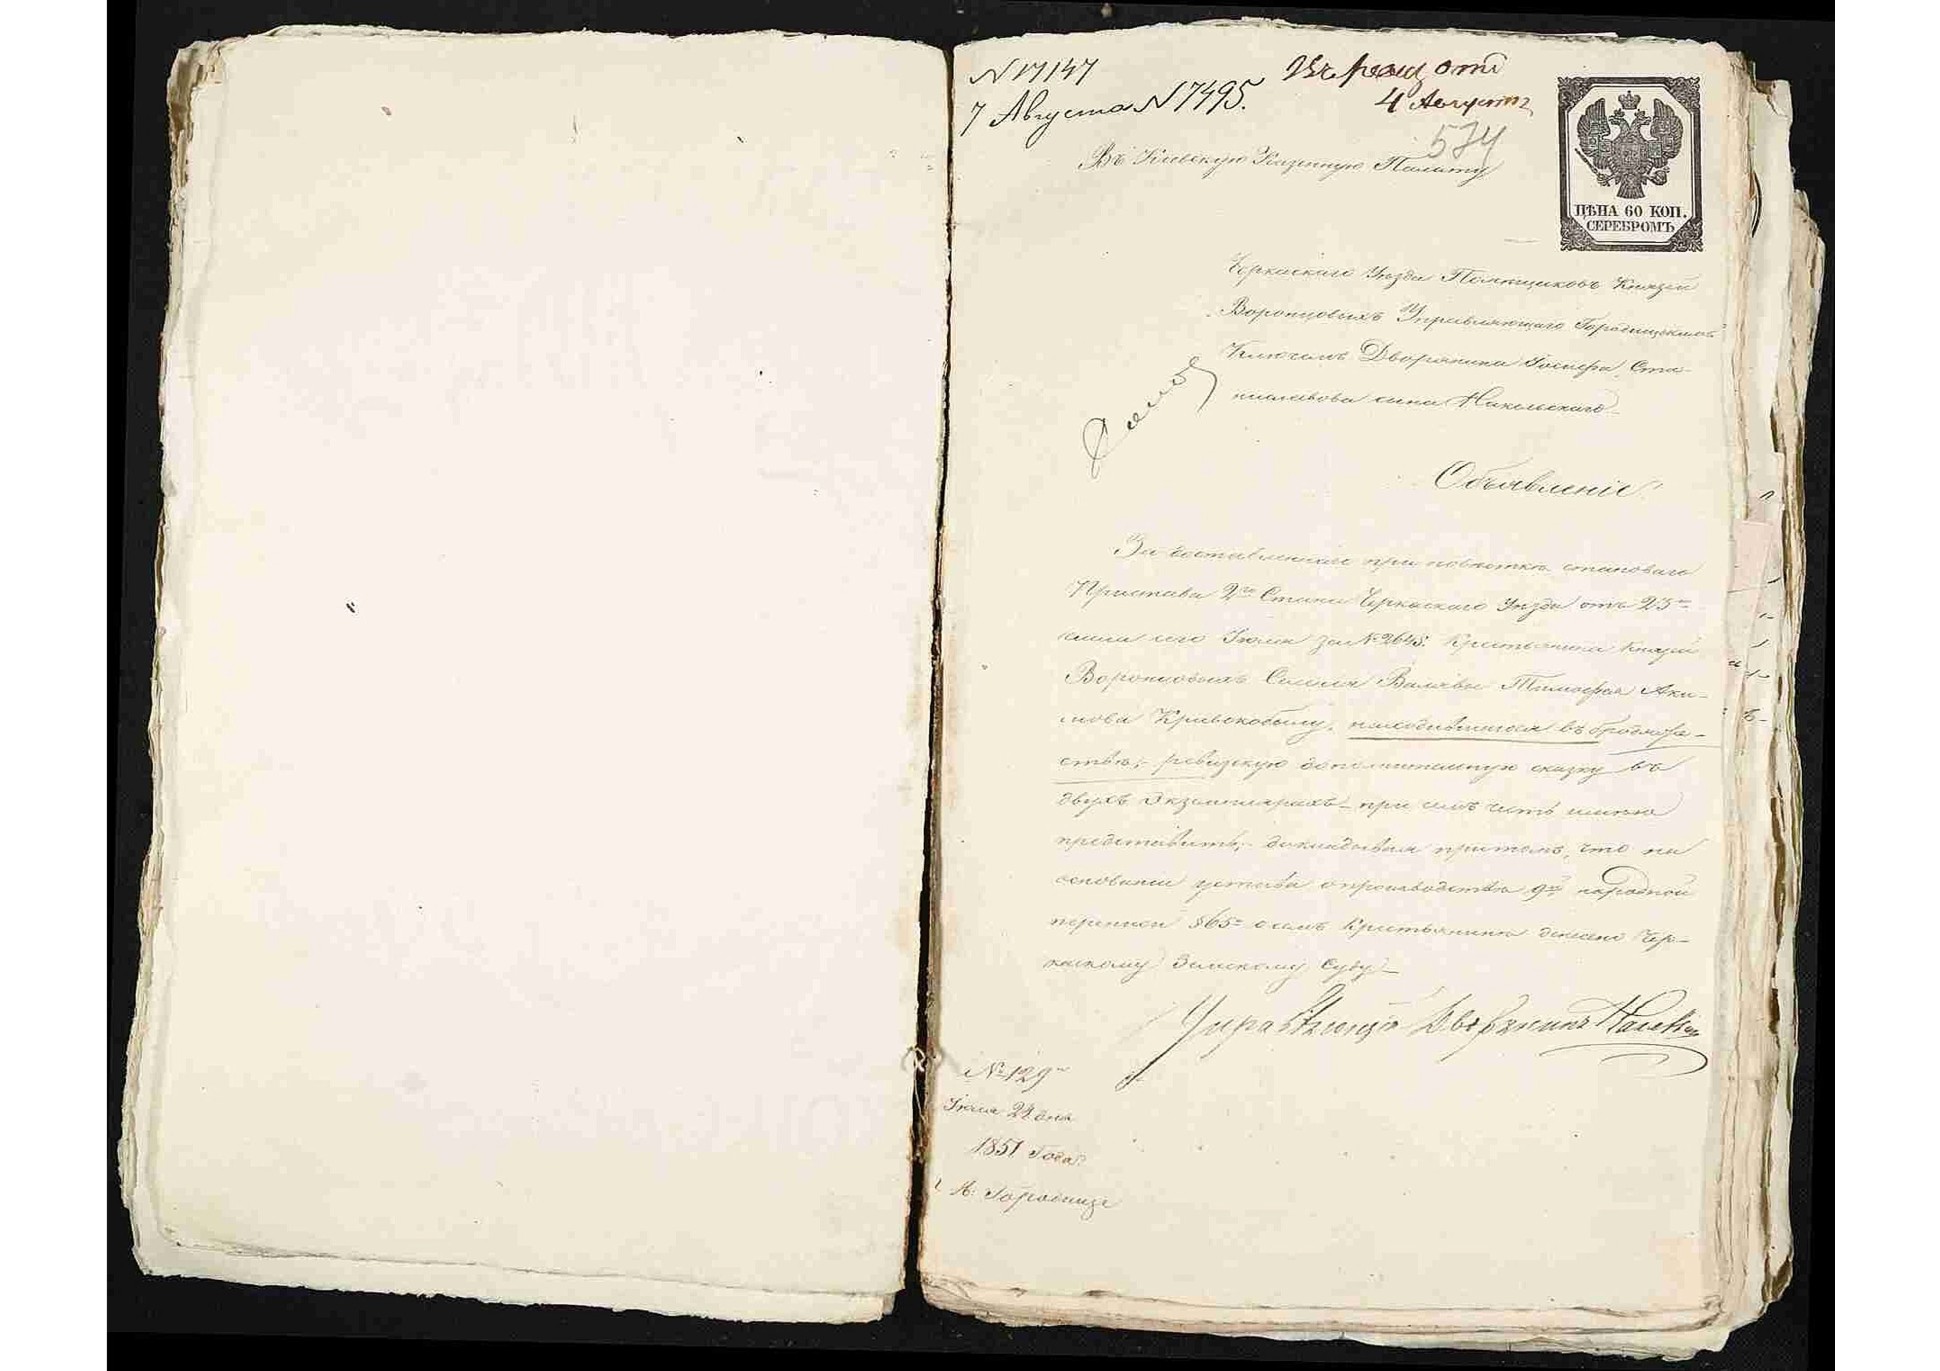 N 17147
7 Августа N 7495.
Въ реэщ отъ
4 Августа
574
Въ Кіевскую Казенную Палату
ЦѢНА 60 КОП.
СЕРЕБРОМЪ
Черкаскаго Уѣзда Помѣщиковъ Князей
Воронцовыхъ Управляющаго Городищскимъ
Ключемъ Дворянина Іосифа Ста-
ниславова сына
Объявленіе
За доставленіемъ при повѣсткѣ становаго
Пристава 2го Стана Черкаскаго Уѣзда отъ 23го
числа сего Іюля за № 2645: Крестьянина Князей
Воронцовыхъ Селенія Валявы Тимофея Аки-
мова Кривокобылу, находившагося въ бродяже-
ствѣ, ревизскую дополнительную сказку въ
двухъ Экземплярахъ при семъ честь имѣю
представить, докладывая притомъ, что на
основаніи устава о производствѣ 9й народной
переписи §65 о семъ Крестьянинѣ донесено Чер-
каскому Земскому Суду
Управляющій Дворянинъ
№ 129
Іюля 24 дня
1851 Года
М: Городище